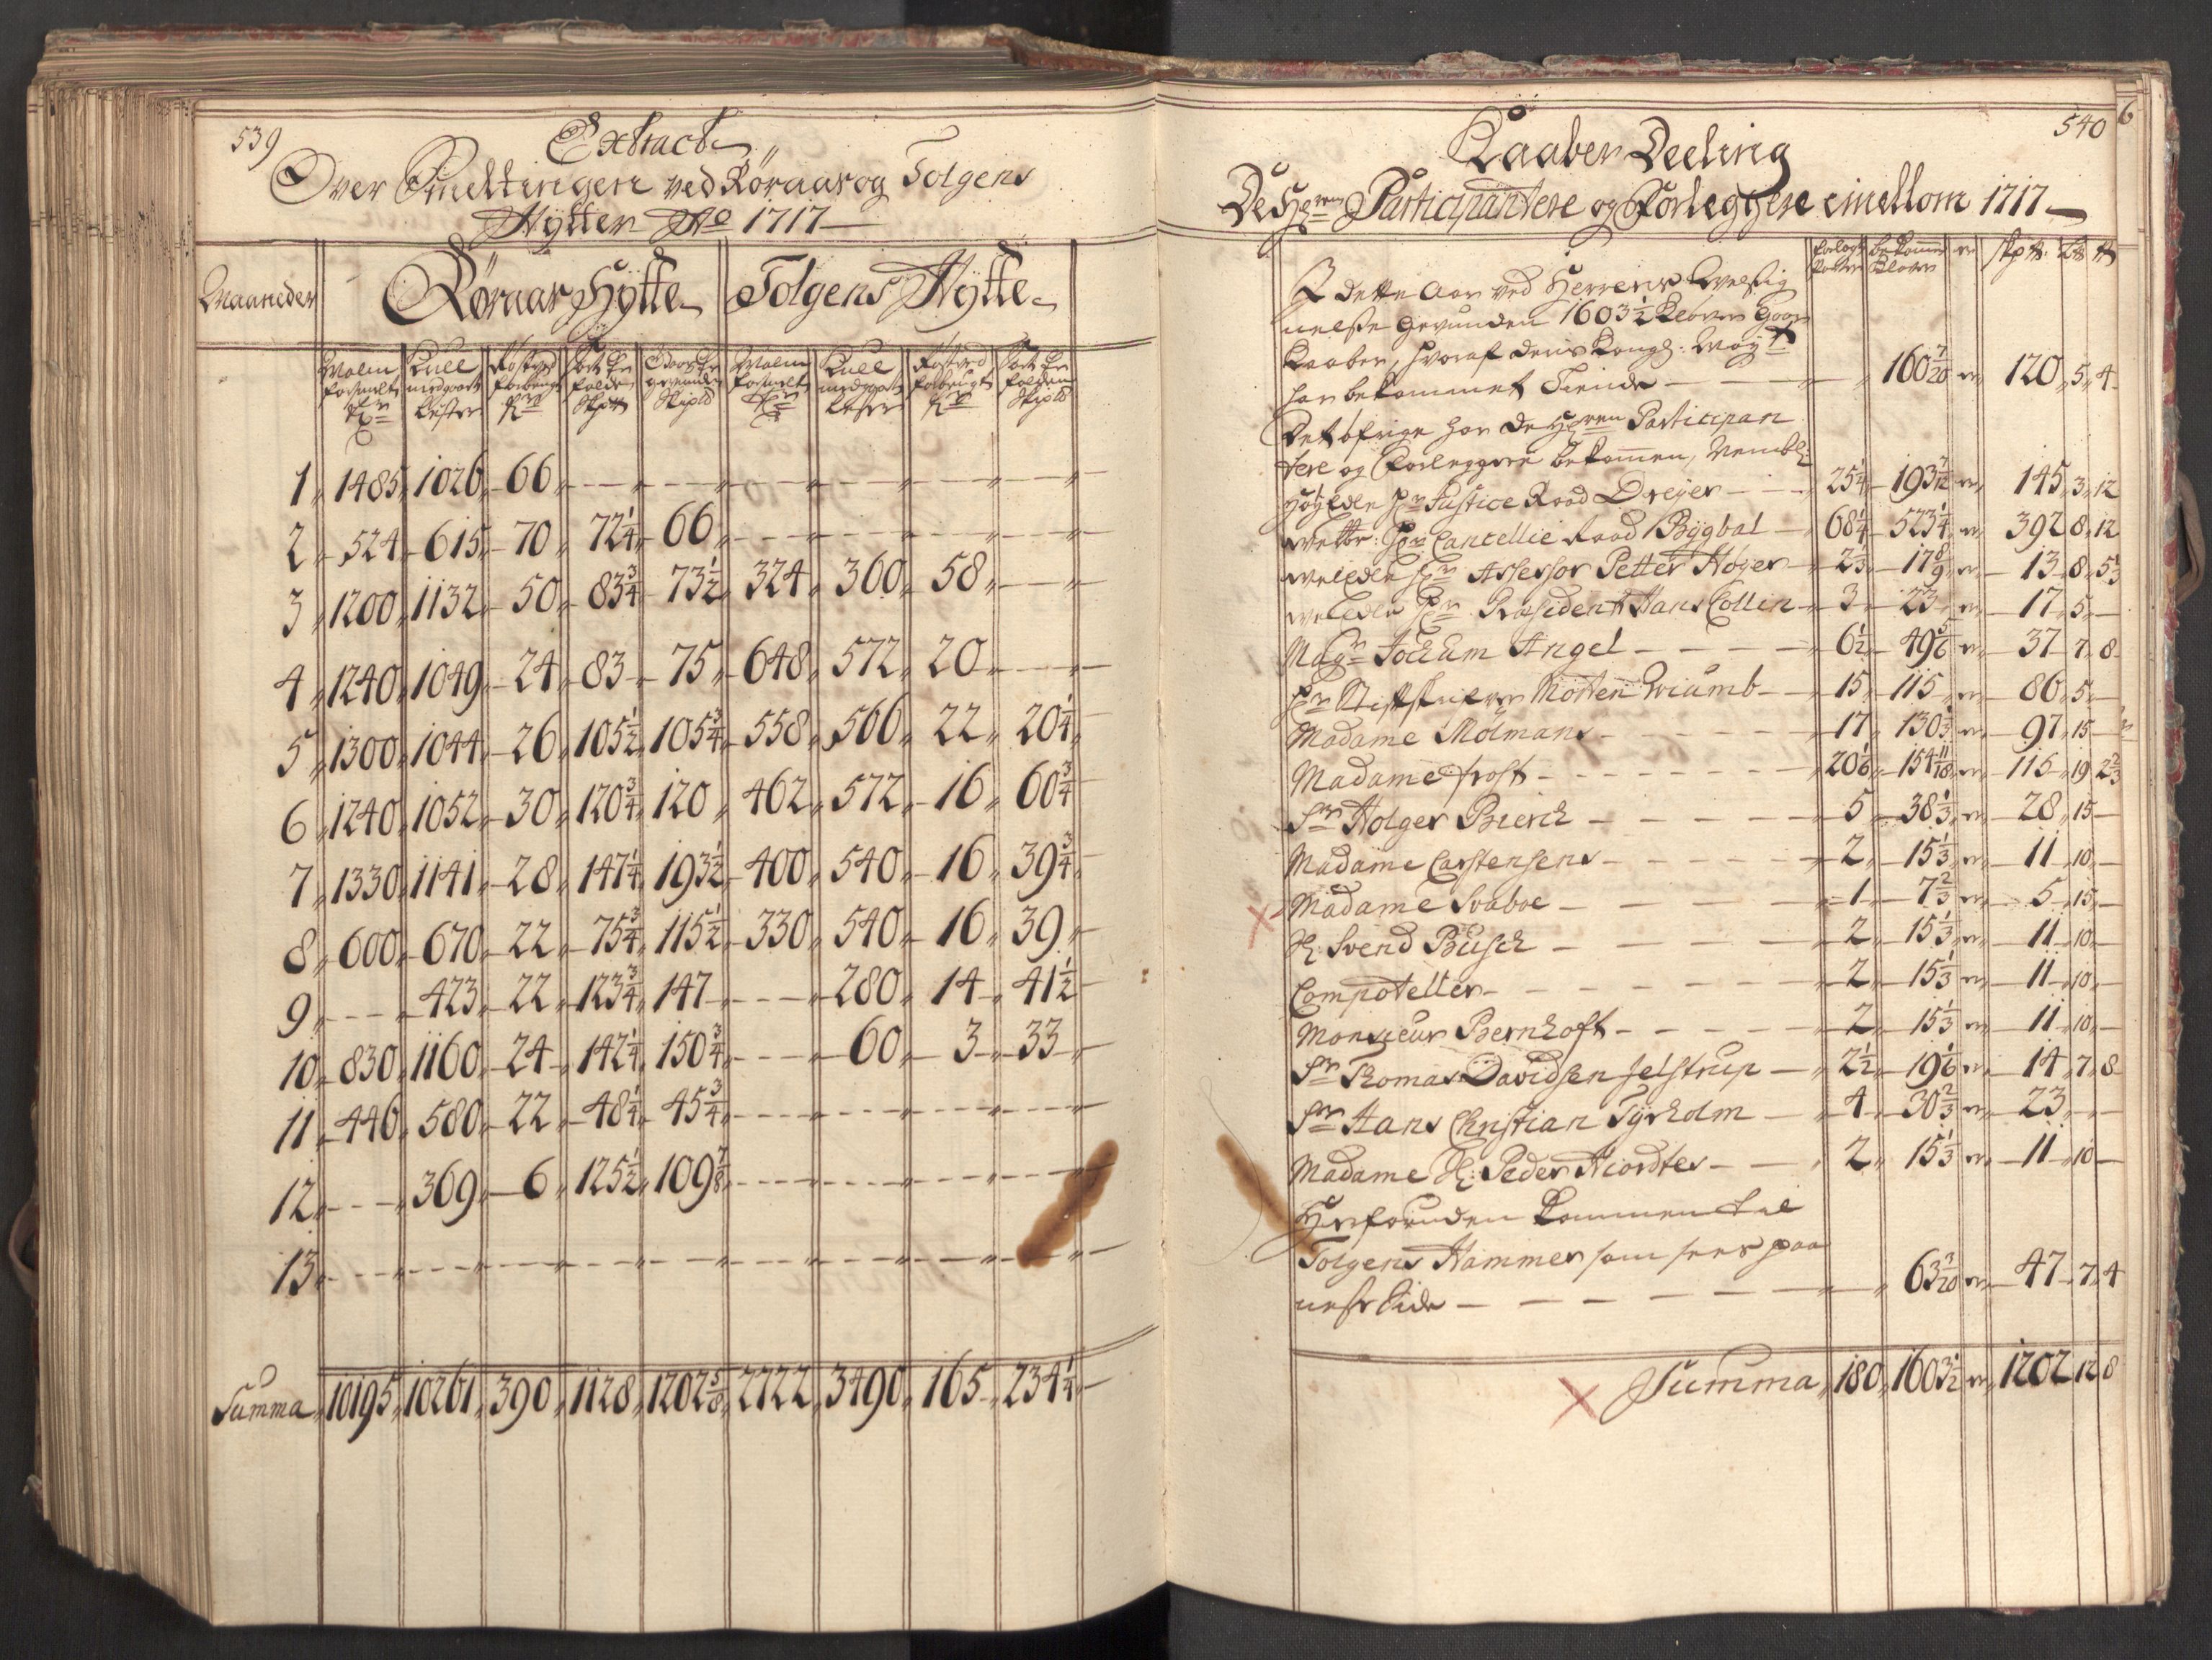 539
Extract
Over Smeltningen ved Röraas og Tolgens
Hÿtter Aº 1717
Maaneder Röraas Hÿtte Tolgens Hÿtte
Malm forsmelt Kull medgaaet Lester forbrugt Sort Kr falden Skp℔ Gaar Kr gevunden Skip℔ Malm forsmelt Kull medgaaet Lester forbrugt Sort Kr falden Skip℔
1 1485 1026 66 — — — — — —
2 524 615 70 72¼ 66 — — — —
3 1200 1132 50 83¾ 73½ 324 360 58 —
4 1240 1049 24 83 75 648 572 20 —
5 1300 1044 26 105½ 105¾ 558 566 22 20¼
6 1240 1052 30 120¾ 120 462 572 16 60¾
7 1330 1141 28 147¼ 193½ 400 540 16 39¾
8 600 670 22 75¾ 115½ 330 540 16 39
9 — 423 22 123¾ 147 — 280 14 41½
10 830 1160 24 142¼ 150¾ — 60 3 33
11 446 580 22 48¼ 45¾ — — — —
12 — 369 6 125½ 109⅞ — — — —
13 — — — — — — — — —
Summa 10195 10261 390 1128 1202⅝ 2722 3490 165 234¼
540
6
Kaaber Deeling
De Hrren Participantere og Forleggere imellom 1717
bekomme Kløver skp℔ L℔ ℔
I dette Aar ved Herrens Velsig
nelse Gevunden 1603½ Kløver Gaar
Kaaber, hvoraf Deris Kongl: Mayt
har bekommet Tiende — 160 7/20 120 5 4
Det öfrige har de Hrren Participan
tere og Forleggere bekommen, Nembl:
HöyEdle Hr Justice Raad Dreyer — 25¼ 193 7/12 145 3 12
Hr Cancellie Raad Bÿgbal — 68¼ 523¼ 392 8 12
WelEdle Hr Assessor Petter Höyer — 2⅓ 17 8/9 13 8 5⅓
WelEdle Hr Præsident Hans Collin — 3 23 17 5 —
Magr Jochum Angel — 6½ 49⅚ 37 7 8
Hr Stiftskrifver Morten — 15 115 86 5 —
Madame Mölmans — 17 130⅓ 97 15 —
Madame Frost — 20⅙ 154 11/18 115 19 2⅔
Sr Holger Bierch — 5 38⅓ 28 15 —
Madame Carstensens — 2 15⅓ 11 10 —
Madame Svaboe — 1 7⅔ 5 15 —
H: Svend Busch — 2 15⅓ 11 10 —
Compotellen — 2 15⅓ 11 10 —
Monsieur Bernhoft — 2 15⅓ 11 10 —
Sr Thomas Davidsen Jelstrup — 2½ 19⅙ 14 7 8
Sr Hans Christian Tÿrholm — 4 30⅔ 23 — —
Madame H: Peder Hiordtes — 2 15⅓ 11 10 —
Herforuden Kommen til
Tolgens Hammer som sees paa
neste Side — 63 3/20 47 7 4
Summa 180 1603½ 1202 12 8